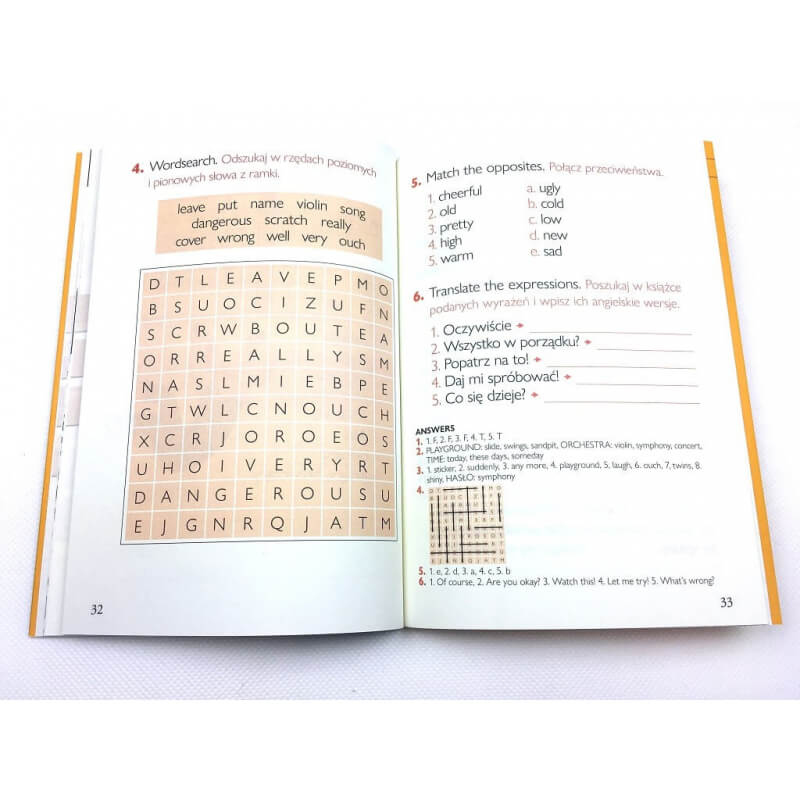 4. Wordsearch. Odszukaj w rzędach poziomych
i pionowych słowa z ramki.
leave put name violin song
dangerous scratch really
cover wrong well very ouch
D T L E A V E P M O
B S U O C I Z U F N
S C R W B O U T E A
O R R E A L L Y S M
N A S L M I E B P E
G T W L C N O U C H
X C R J O R O E O S
U H O I V E R Y R T
D A N G E R O U S U
E J G N R Q J A T M
32
5. Match the opposites. Połącz przeciwieństwa.
1. cheerful a. ugly
2. old b. cold
3. pretty c. low
4. high d. new
5. warm e. sad
6. Translate the expressions. Poszukaj w książce
podanych wyrażeń i wpisz ich angielskie wersje.
1. Oczywiście
2. Wszystko w porządku?
3. Popatrz na to!
4. Daj mi spróbować!
5. Co się dzieje?
ANSWERS
1. 1. F, 2. F, 3. F, 4. T, 5. T
2. PLAYGROUND: slide, swings, sandpit, ORCHESTRA: violin, symphony, concert,
TIME: today, these days, someday
3. 1. sticker, 2. suddenly, 3. any more, 4. playground, 5. laugh, 6. ouch, 7, twins, 8.
shiny, HASŁO: symphony
4.
5. 1. e, 2. d, 3. a, 4. c, 5. b
6. 1. Of course, 2. Are you okay? 3. Watch this! 4. Let me try! 5. What's wrong?
33